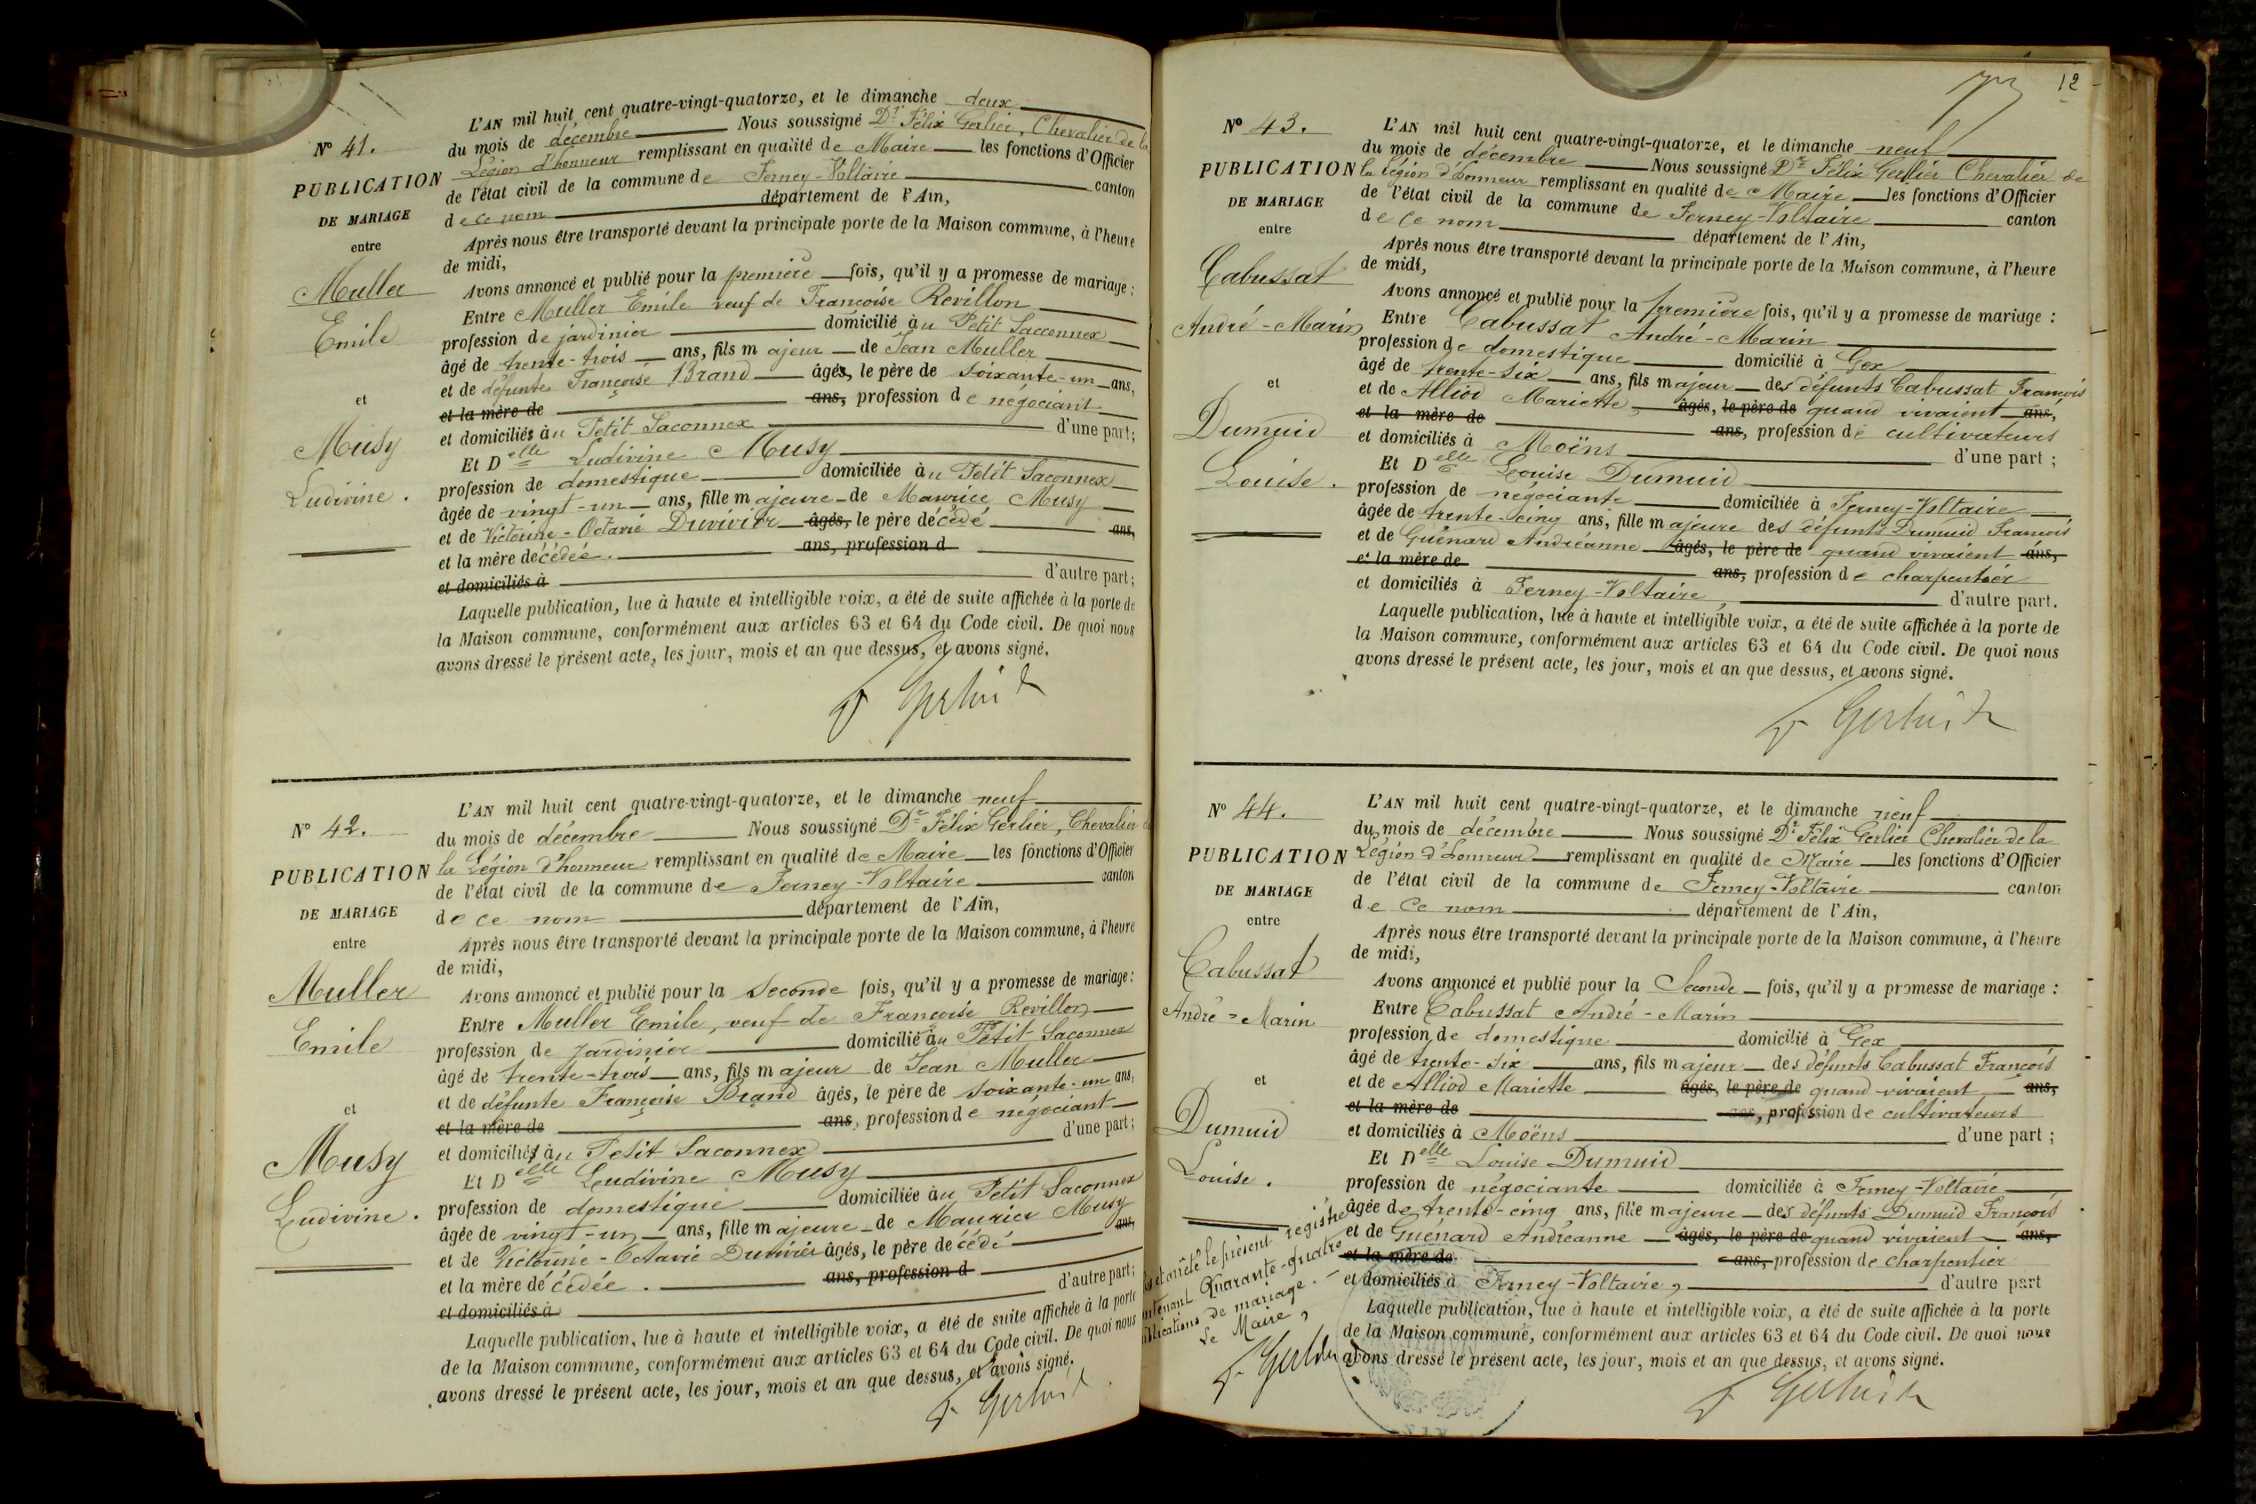 N° 41.
PUBLICATION
DE MARIAGE
entre
Muller
Emile
et
Musy
Ludivine.
L'AN mil huit cent quatre-vingt-quatorze, et le dimanche deux
du mois de décembre Nous soussigné Dr Félix Gerlier, Chevalier de la
Légion d'honneur remplissant en qualité de Maire les fonctions d'Officier
de l'état civil de la commune de Ferney-Voltaire canton
de ce nom département de l'Ain,
Après nous être transporté devant la principale porte de la Maison commune, à l'heure
de midi,
Avons annoncé et publié pour la première fois, qu'il y a promesse de mariage :
Entre Muller Emile veuf de Françoise Revillon
profession de jardinier domicilié au Petit Sacconnex
âgé de trente-trois ans, fils majeur de Jean Muller
et de défunte Françoise Brand âgés, le père de soixante-un ans,
et la mère de ans, profession de négociant
et domiciliés au Petit Saconnex d'une part ;
Et Delle Ludivine Musy
profession de domestique domiciliée au Petit Saconnex
âgée de vingt-un ans, fille majeure de Maurice Musy
et de Victorine-Octavie Duvivier âgés, le père décédé ans,
et la mère décédée. ans, profession d
et domiciliés à d'autre part ;
Laquelle publication, lue à haute et intelligible voix, a été de suite affichée à la porte de
la Maison commune, conformément aux articles 63 et 64 du Code civil. De quoi nous
avons dressé le présent acte, les jour, mois et an que dessus, et avons signé.
F Gerlier
N° 42.
PUBLICATION
DE MARIAGE
entre
Muller
Emile
et
Musy
Ludivine.
L'AN mil huit cent quatre-vingt-quatorze, et le dimanche neuf
du mois de décembre Nous soussigné Dr Félix Gerlier, Chevalier de
la Légion d'honneur remplissant en qualité de Maire les fonctions d'Officier
de l'état civil de la commune de Ferney-Voltaire canton
de ce nom département de l'Ain,
Après nous être transporté devant la principale porte de la Maison commune, à l'heure
de midi,
Avons annoncé et publié pour la Seconde fois, qu'il y a promesse de mariage :
Entre Muller Emile, veuf de Françoise Revillon
profession de jardinier domicilié au Petit Saconnex
âgé de trente-trois ans, fils majeur de Jean Muller
et de défunte Françoise Brand âgés, le père de soixante-un ans,
et la mère de ans, profession de négociant
et domiciliés au Petit Saconnex d'une part ;
Et Delle Ludivine Musy
profession de domestique domiciliée au Petit Saconnex
âgée de vingt-un ans, fille majeure de Maurice Musy
et de Victorine-Octavie Duvivier âgés, le père décédé ans,
et la mère décédée. ans, profession d
et domiciliés à d'autre part ;
Laquelle publication, lue à haute et intelligible voix, a été de suite affichée à la porte
de la Maison commune, conformément aux articles 63 et 64 du Code civil. De quoi nous
avons dressé le présent acte, les jour, mois et an que dessus, et avons signé.
F Gerlier
12
N° 43.
PUBLICATION
DE MARIAGE
entre
Cabussat
André-Marin
et
Dumuid
Louise.
L'AN mil huit cent quatre-vingt-quatorze, et le dimanche neuf
du mois de décembre Nous soussigné Dr Félix Gerlier Chevalier de
la Légion d'honneur remplissant en qualité de Maire les fonctions d'Officier
de l'état civil de la commune de Ferney-Voltaire canton
de ce nom département de l'Ain,
Après nous être transporté devant la principale porte de la Maison commune, à l'heure
de midi,
Avons annoncé et publié pour la première fois, qu'il y a promesse de mariage :
Entre Cabussat André-Marin
profession de domestique domicilié à Gex
âgé de trente-six ans, fils majeur des défunts Cabussat François
et de Alliod Mariette, âgés, le père de quand vivaient ans,
et la mère de ans, profession de cultivateurs
et domiciliés à Moëns d'une part ;
Et Delle Louise Dumuid
profession de négociante domiciliée à Ferney-Voltaire
âgée de trente-cinq ans, fille majeure des défunts Dumuid François
et de Guénard Andréanne âgés, le père de quand vivaient ans,
et la mère de ans, profession de charpentier
et domiciliés à Ferney-Voltaire, d'autre part.
Laquelle publication, lue à haute et intelligible voix, a été de suite affichée à la porte de
la Maison commune, conformément aux articles 63 et 64 du Code civil. De quoi nous
avons dressé le présent acte, les jour, mois et an que dessus, et avons signé.
F Gerlier
N° 44.
PUBLICATION
DE MARIAGE
entre
Cabussat
André-Marin
et
Dumuid
Louise.
L'AN mil huit cent quatre-vingt-quatorze, et le dimanche neuf
du mois de décembre Nous soussigné Dr Félix Gerlier Chevalier de la
Légion d'honneur remplissant en qualité de Maire les fonctions d'Officier
de l'état civil de la commune de Ferney-Voltaire canton
de ce nom département de l'Ain,
Après nous être transporté devant la principale porte de la Maison commune, à l'heure
de midi,
Avons annoncé et publié pour la Seconde fois, qu'il y a promesse de mariage :
Entre Cabussat André-Marin
profession de domestique domicilié à Gex
âgé de trente-six ans, fils majeur des défunts Cabussat François
et de Alliod Mariette âgés, le père de quand vivaient ans,
et la mère de ans, profession de cultivateurs
et domiciliés à Moëns d'une part ;
Et Delle Louise Dumuid
profession de négociante domiciliée à Ferney-Voltaire
âgée de trente-cinq ans, fille majeure des défunts Dumuid François
et de Guénard Andréanne âgés, le père de quand vivaient ans,
et la mère de ans, profession de charpentier
et domiciliés à Ferney-Voltaire, d'autre part
Laquelle publication, lue à haute et intelligible voix, a été de suite affichée à la porte
de la Maison commune, conformément aux articles 63 et 64 du Code civil. De quoi nous
avons dressé le présent acte, les jour, mois et an que dessus, et avons signé.
F Gerlier
et arrêté le présent registre
contenant Quarante-quatre
publications de mariage.
Le Maire,
F Gerlier